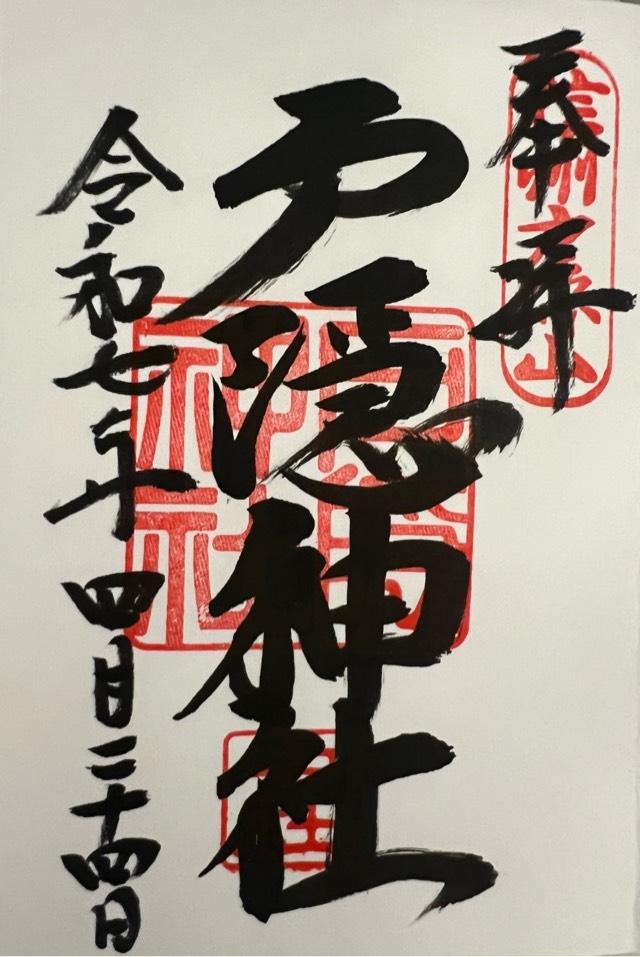 奉拝
戸隠神社
令和七年四月二十四日